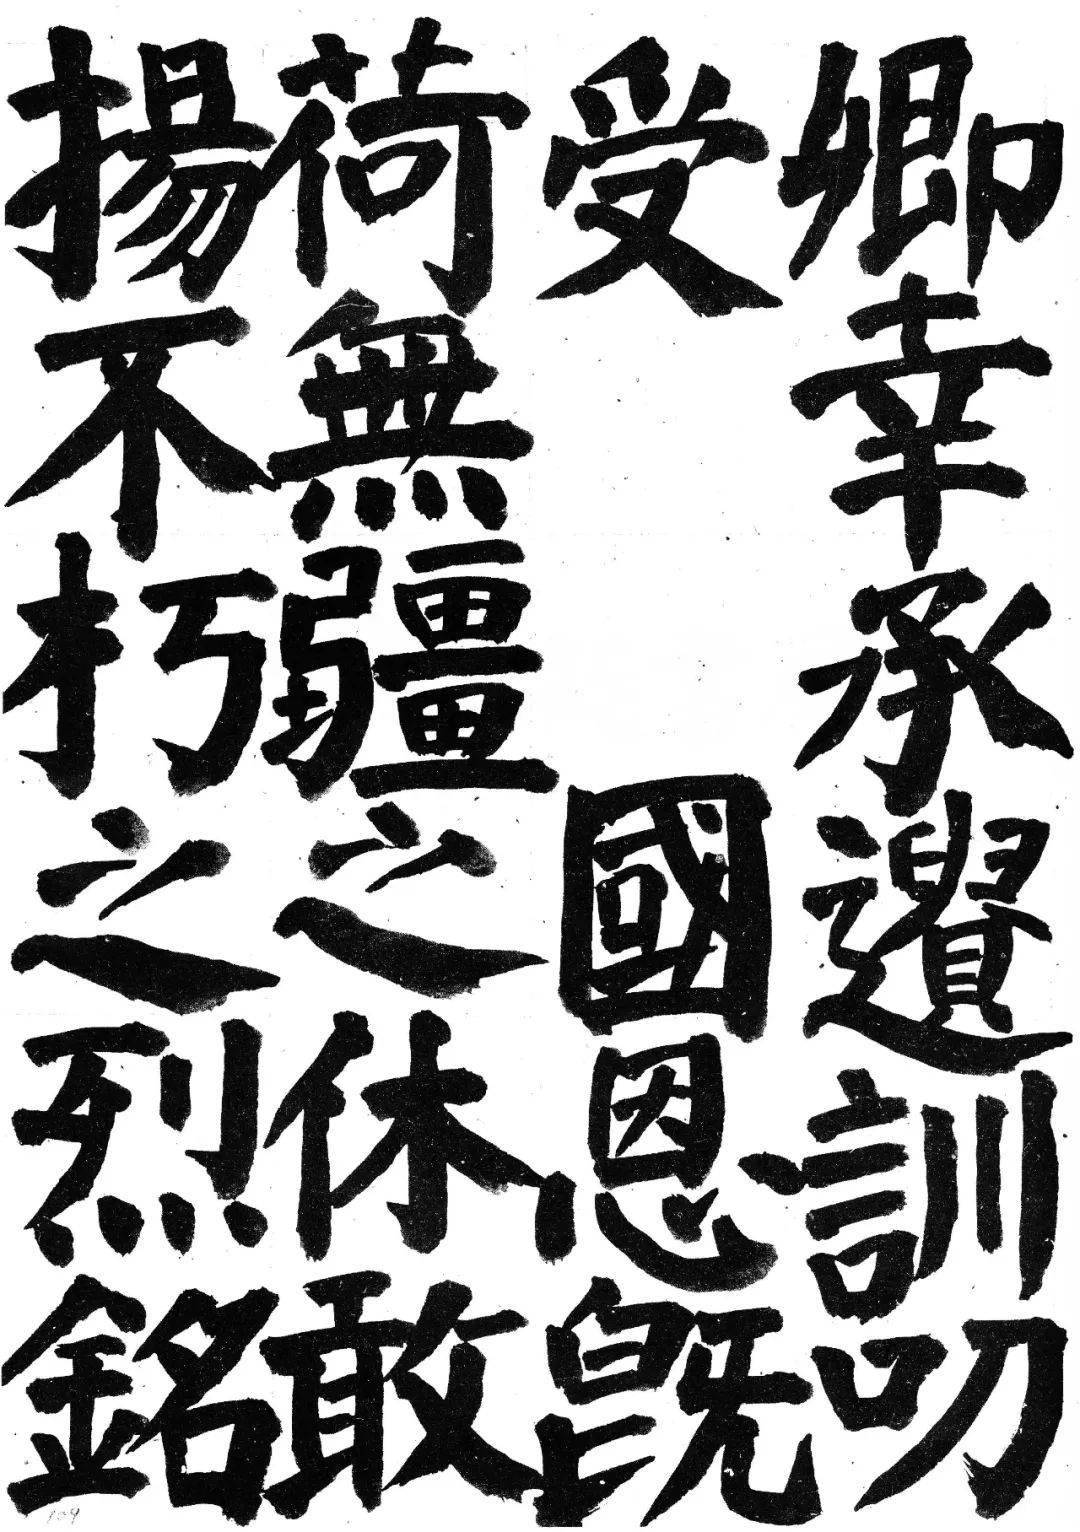 卿幸承遺訓叨
受國恩既
荷無疆之休敢
揚不朽之烈銘